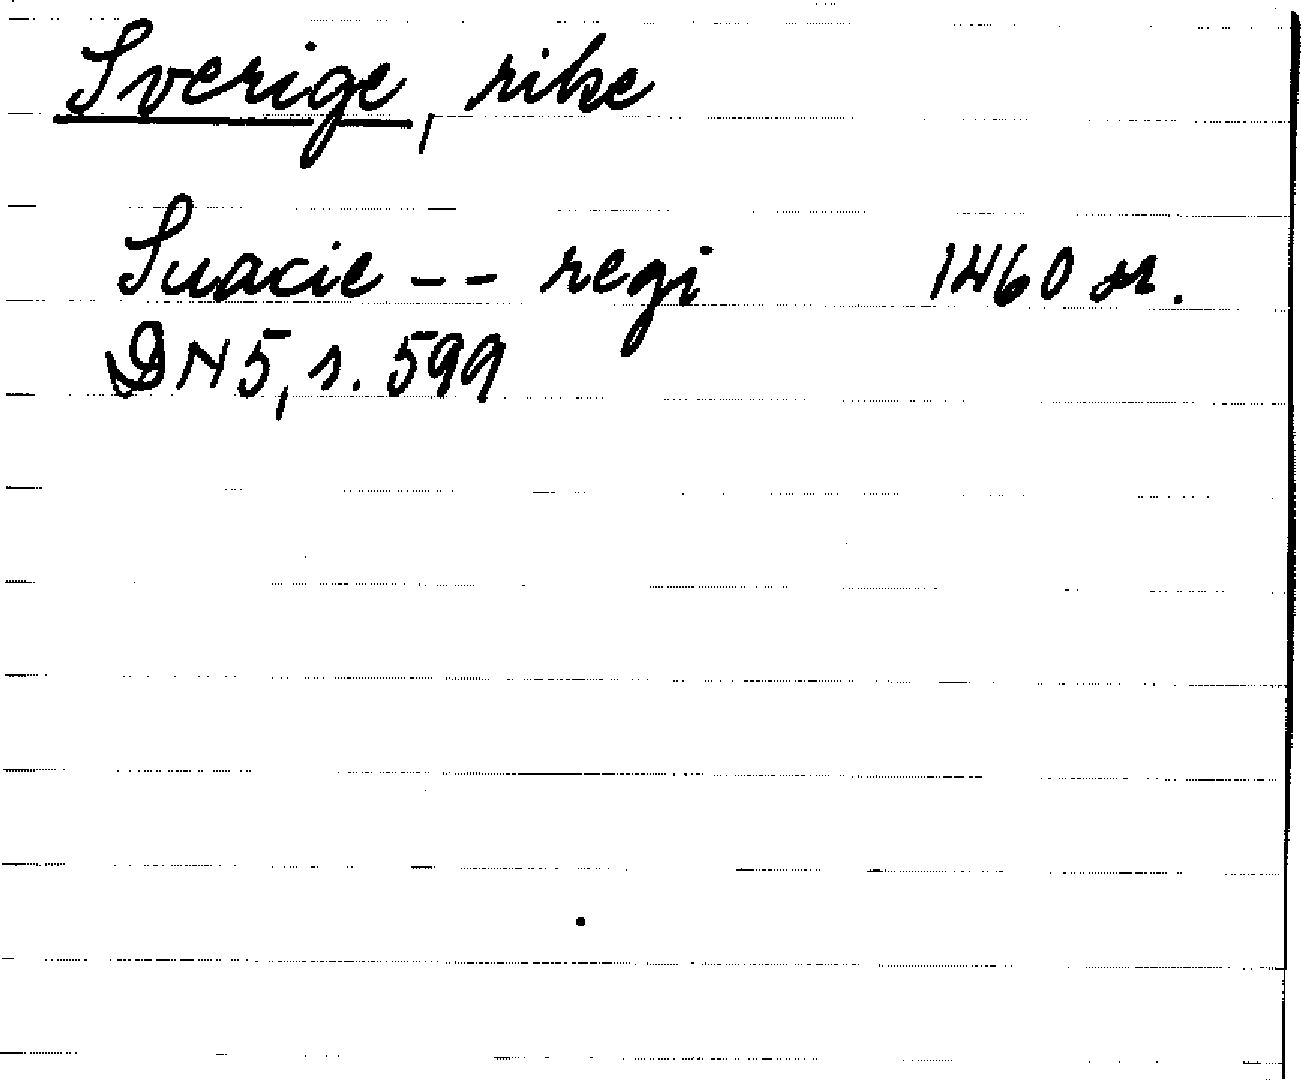 Sverige, rike
Suacie -- regi 1460 or.
DN 5, s. 599